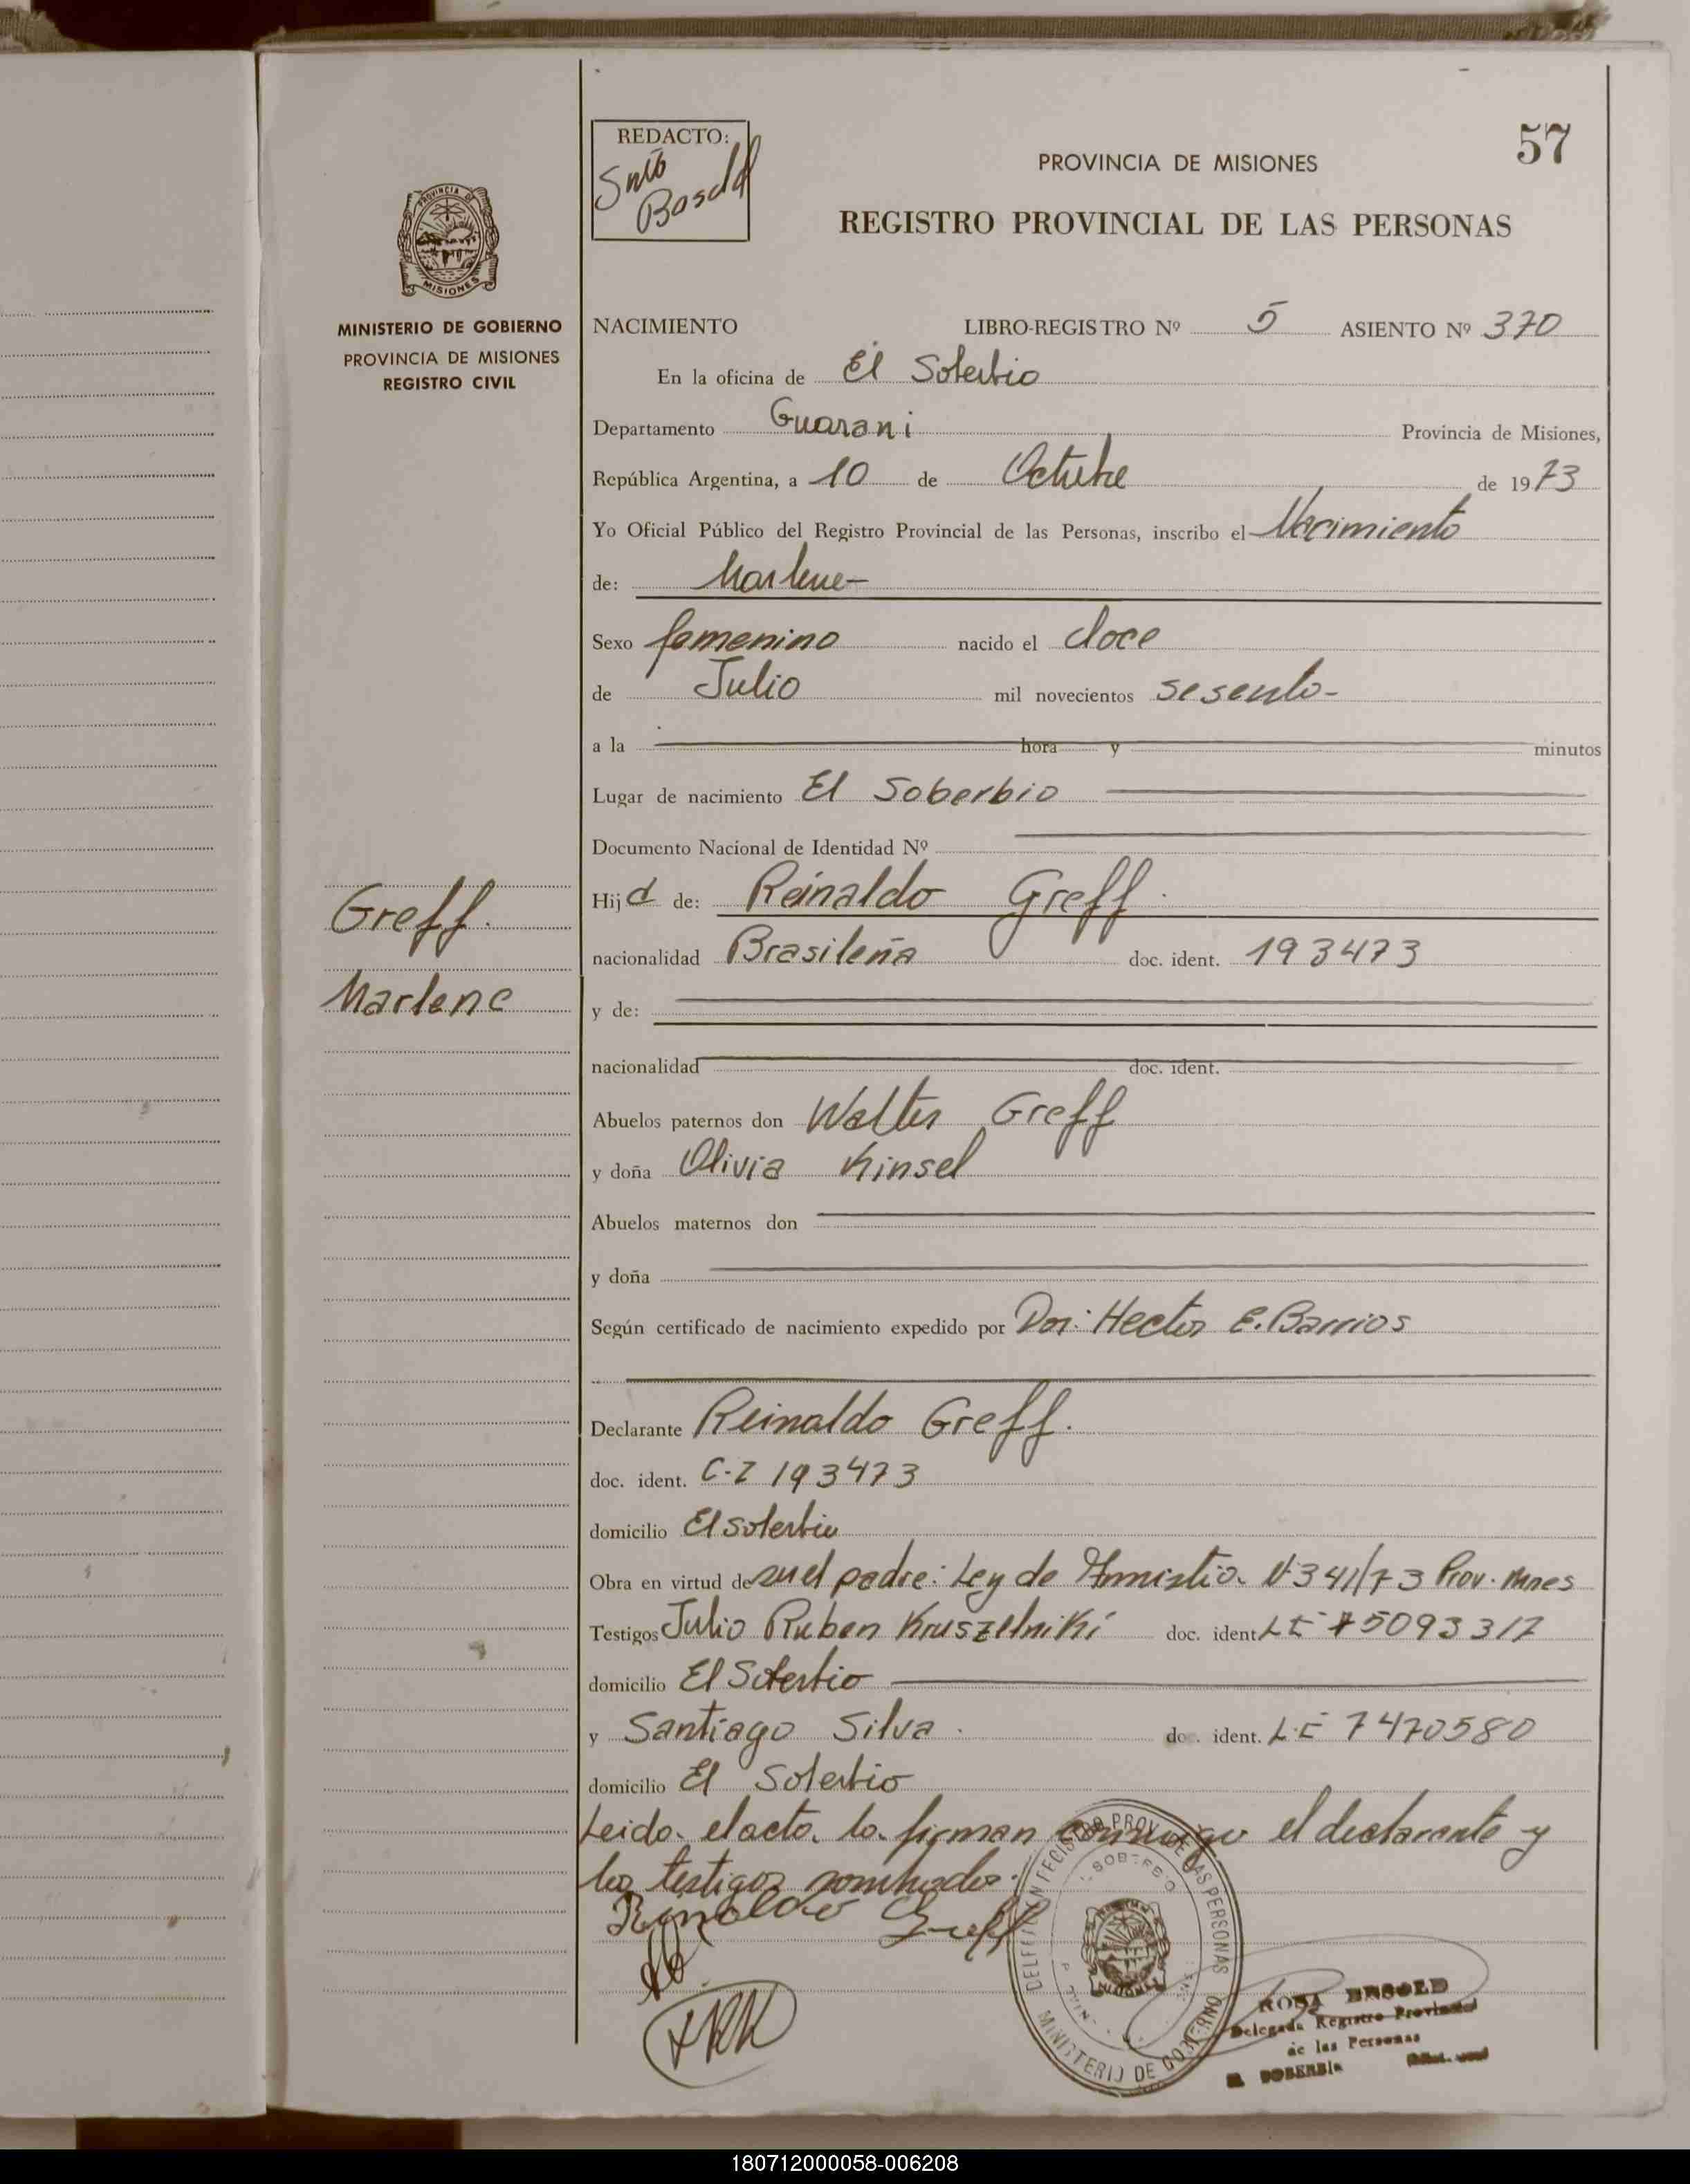 57
REDACTO:
PROVINCIA DE MISIONES
REGISTRO PROVINCIAL DE LAS PERSONAS
PROVINCIA DE
MISIONES
MINISTERIO DE GOBIERNO
PROVINCIA DE MISIONES
REGISTRO CIVIL
NACIMIENTO LIBRO-REGISTRO Nº 5 ASIENTO Nº 370
En la oficina de El Soberbio
Departamento Guarani Provincia de Misiones,
República Argentina, a 10 de Octubre de 1973
Yo Oficial Público del Registro Provincial de las Personas, inscribo el Nacimiento
de: Marlene
Sexo femenino nacido el doce
de Julio mil novecientos sesenta
a la hora y minutos
Lugar de nacimiento El Soberbio
Documento Nacional de Identidad Nº
Greff.
Marlene
Hija de: Reinaldo Greff
nacionalidad Brasileña doc. ident. 193473
y de:
nacionalidad doc. ident.
Abuelos paternos don Walter Greff
y doña Olivia Kinsel
Abuelos maternos don
y doña
Según certificado de nacimiento expedido por Dor: Hector E. Barrios
Declarante Reinaldo Greff.
doc. ident. C.I 193473
domicilio El Soberbio
Obra en virtud de su el padre: Ley de Amnistia Nº 341/73 Prov. Mnes
Testigos Julio Ruben Kruszelniki doc. ident. LE 5093317
domicilio El Soberbio
y Santiago Silva doc. ident. L.E 7470580
domicilio El Soberbio
Leido el acto lo firman conmigo el declarante y
los testigos nombrados.
Reinaldo Greff
MINISTERIO DE GOBIERNO
Delegada Registro Provincial
de las Personas
180712000058-006208